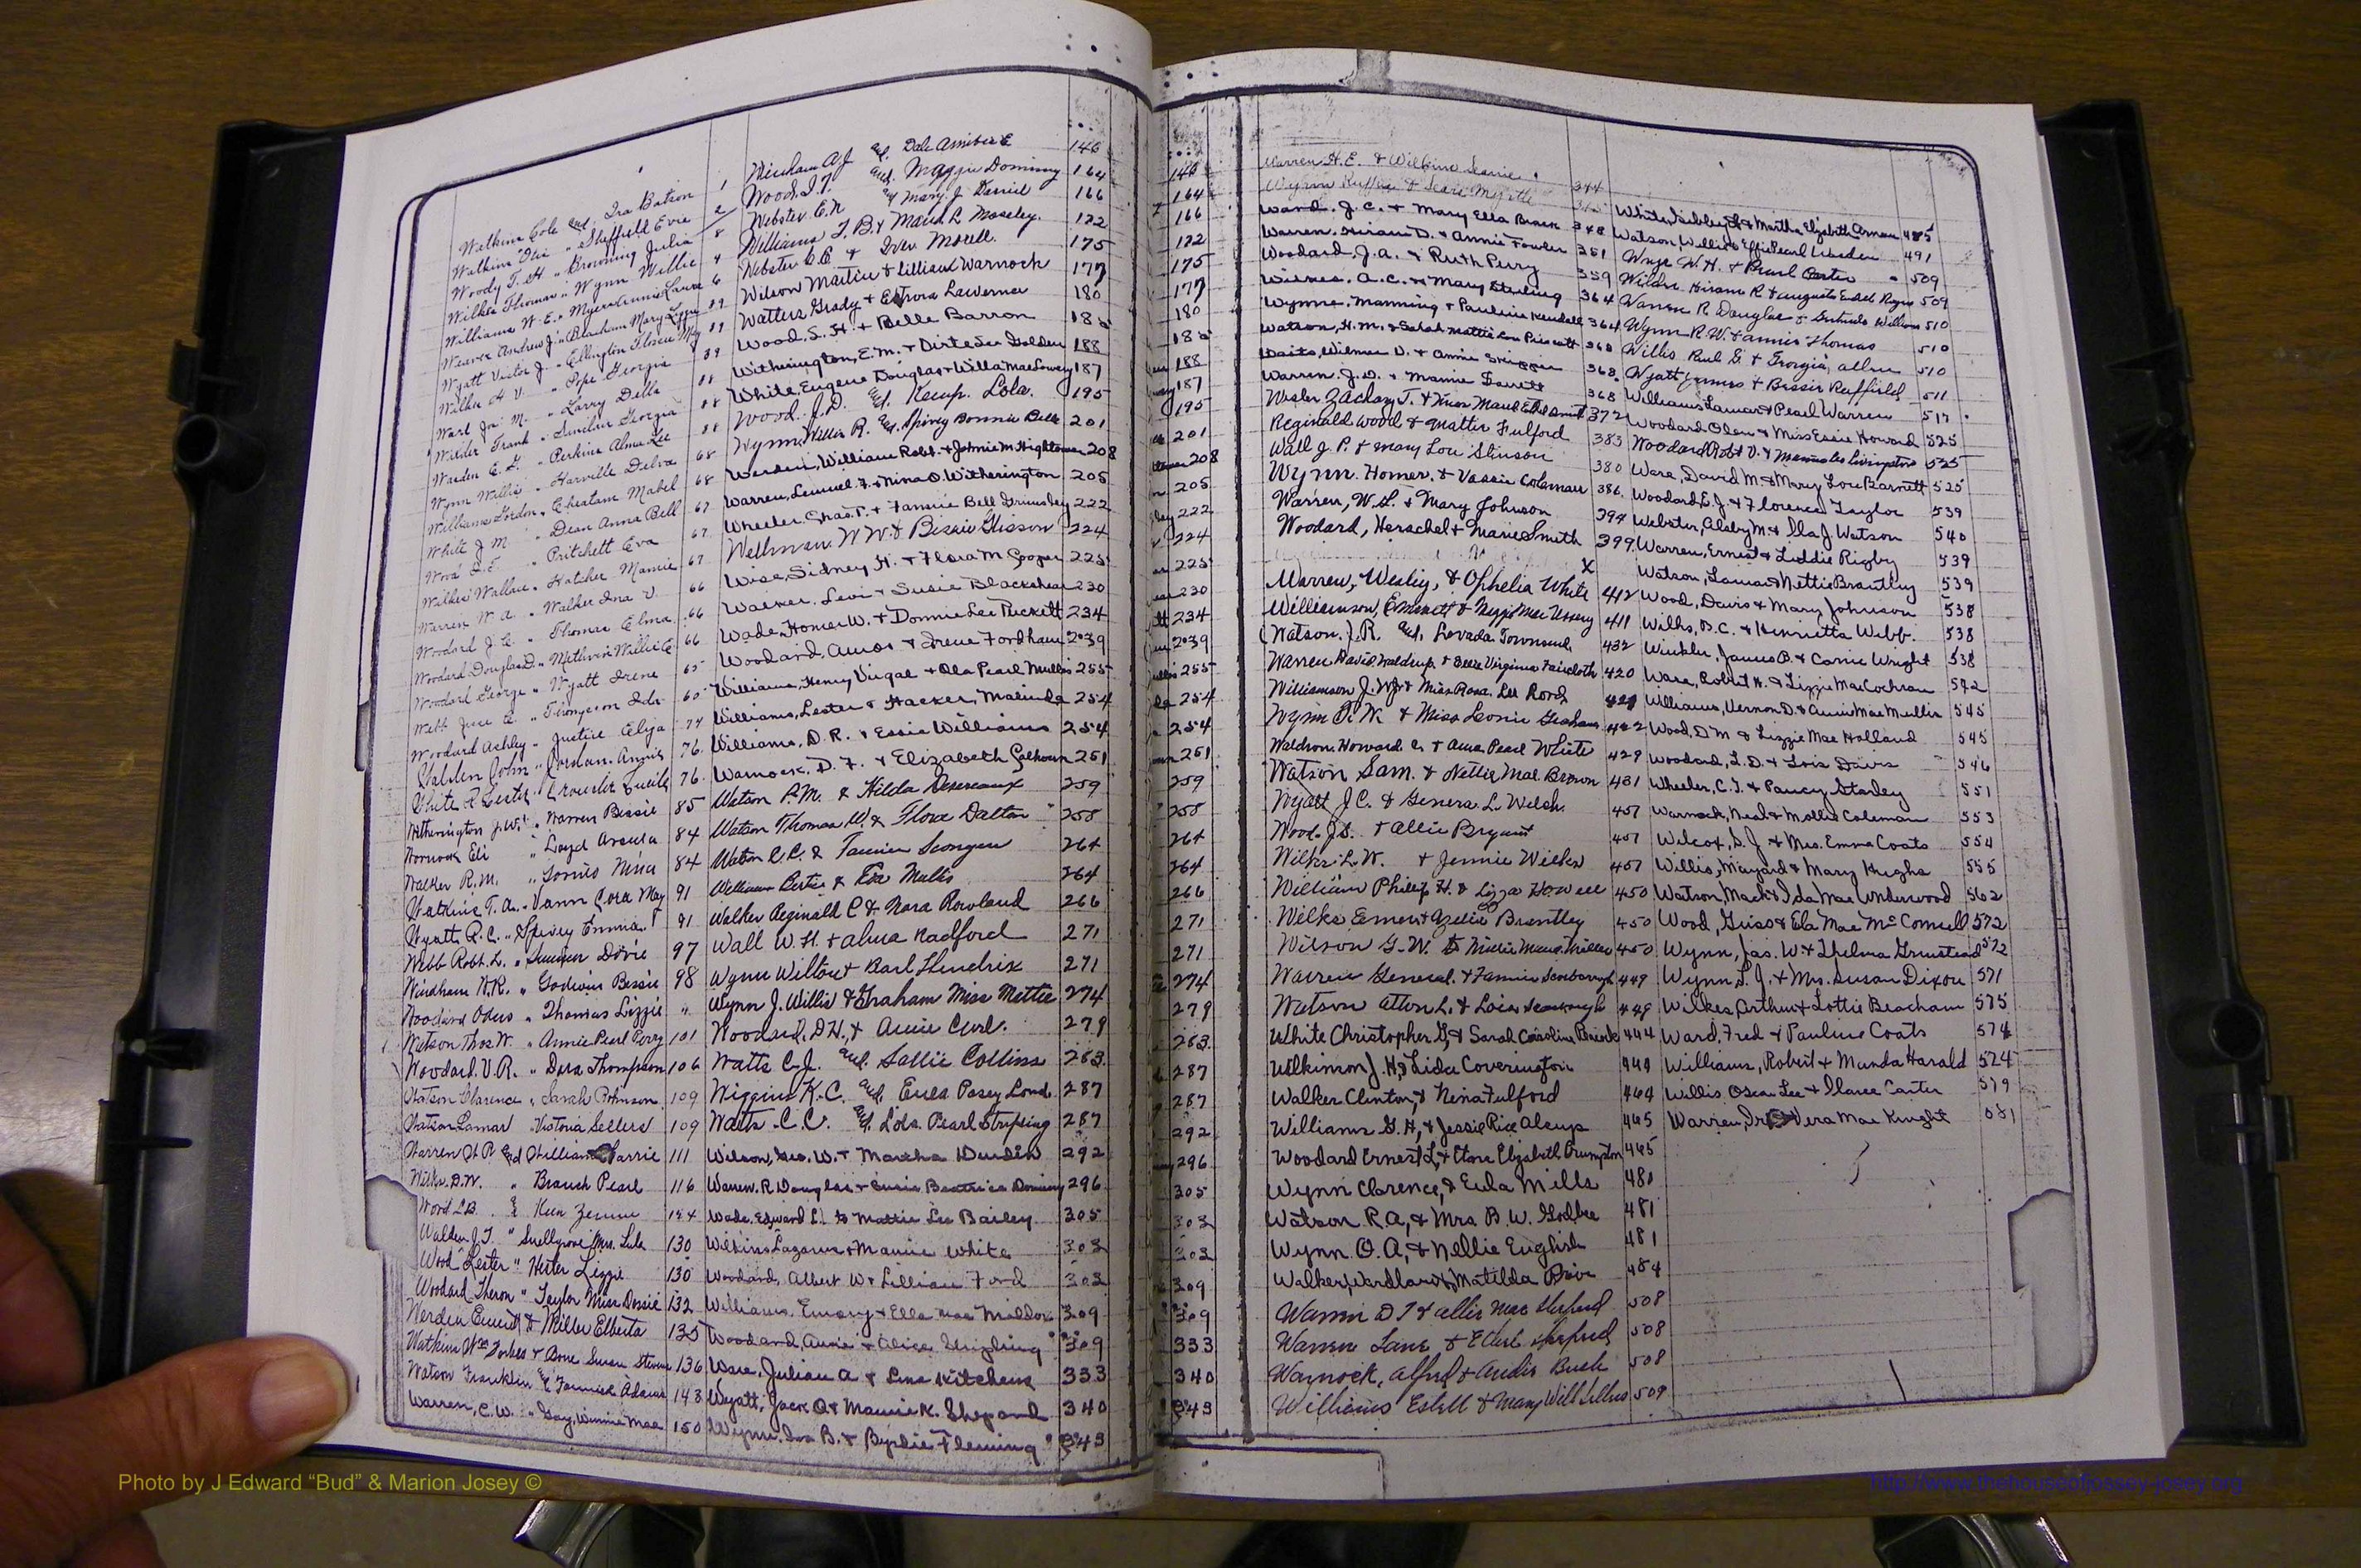 Watkins Cole and Ira Batson 1
Watkins Olie " Sheffield Evie 2
Woody T. H. " Browning Julia 8
Wilkes Thomas " Wynn Willie 4
Williams W. E. " Myers Annie Laura 6
Weaver Andrew J. " Beacham Mary Lizzie 89
Wyatt Victor J. " Ellington Flossie May 89
Wilkes H. V. " Pope Georgia 89
Ward Jas. M. " Larry Della 88
Wilder Frank " Sinclair Georgia 88
Warden E. L. " Perkins Alma Lee 88
Wynn Willie " Harville Delva 68
Williams Gordon " Cheatam Mabel 68
White J M " Dean Anna Bell 67
Wood " Pritchett Eva 67
Wilkes Wallace " Hatcher Mamie 67
Warren W. A. " Walker Ina V. 66
Woodard J. E. " Thomas Elma 66
Woodard Douglas D. " Methvin Willie C. 66
Woodard George " Wyatt Irene 65
Webb Jesse " Thompson Ida 65
Woodard Ashley " Justice Eliza 77
Walden John " Jordan Annie 76
White R Lester " Crowder Lucile 76
Witherington J. W. " Warren Bessie 85
Warnock Eli " Loyd Arsula 84
Walker R. M. " Loomis Nina 84
Watkins T. A. " Vann Cora May 91
Wyatt R. C. " Spivey Emma 91
Webb Robt. L. " Dovie 97
Windham N. R. " Godwin Bessie 98
Woodard Odus " Thomas Lizzie "
Watson Thos W. " Annie Pearl Perry 101
Woodard V. R. " Dora Thompson 106
Watson Clarence " Sarah Robinson 109
Watson Lamar " Victoria Sellers 109
Warren and William Carrie 111
Wilkes D. W. " Branch Pearl 116
Wood L.B. & Keen
Walden J. T. " Snellgrove Mrs. Lula 130
Wood Lester " Hester Lizzie 130
Woodard Theron " Taylor Miss Dossie 132
Werden Emmett & Miller Elberta 135
Watkins Wm Forbes & Bone Susan Stevens 136
Watson Franklin & Fannie Adams 143
Warren, C. W. " Gay, Winnie Mae 150
Windham A J and Dale Annibee E 146
Wood J. T. and Maggie Dominy 164
Webster E. N and Mary J. Daniel 166
Williams T. B. & Maud R. Moseley 122
Webster C. C. & Iver Morell 175
Wilson Martin & Lillian Warnock 177
Watters Grady & LaVerna 180
Wood, S. H. & Belle Barron
Witherington, E. M. & Dirtesee Holden 188
White, Eugene Douglas & Willa Mae Lowery 187
Wood. J. D. and Kemp. Lola. 195
Wynn, Willis R. and Spivey Bonnie Belle 201
Werden, William Robt. & Johnie M. Hightower 208
Warren, Lemuel F. & Nina O. Witherington 205
Wheeler Chas. T. & Fannie Bell Grimsley 222
Wellman W W. & Bessie Glisson 224
Wise, Sidney H. & Flora M Cooper 225
Walker, Levi & Susie Blackshear 230
Wade, Homer W. & Donnie Lee Puckett 234
Woodard, Amos & Irene Fordham 239
Williams, Henry Virgal & Ola Pearl Mullis 255
Williams, Lester & Hacker, Malinda 254
Williams, D. R. & Essie Williams 254
Warnock, D. F. & Elizabeth Calhoun 251
Watson P. M. & Hilda Desereaux 259
Watson Thomas W. & Flora Dalton 258
Watson C. C. & Fannie 264
William Bertie & Eva Mullis 264
Walker Reginald C & Nora Rowland 266
Wall W. H. & Alma Radford 271
Wynn Wilton & Earl Hendrix 271
Wynn J. Willis & Graham Miss Mettie 274
Woodard, D. H., & Annie Curl. 279
Watts C. J. and Sallie Collins 283
Wiggins K. C. and Eula Posey Lord 287
Watts C. C. and Lola Pearl Stripling 287
Wilson, Geo. W. & Martha Durden 292
Warren, R Douglas & Susie Beatrice Dominy 296
Wade, Edward L. to Mattie Lee Bailey 305
Wilkins Lazarus & Mamie White 303
Woodard, Albert W & Lillian Ford 303
Williams, Emory & Ella Mae Maddox 309
Woodard, & Alice 309
Ware, Julian A & Lena Kitchens 333
Wyatt, Jack O & Mamie K. Shepard 340
Wynn, Ira B. & Byrdie Fleming 343
146
164
166
122
175
177
180
188
187
195
201
208
205
222
224
225
230
234
239
255
254
254
251
259
258
264
264
266
271
271
274
279
283
287
287
292
296
305
303
303
309
309
333
340
343
Warren H. E. & Wilkins 344
Wynn & Myrtle
Ward. J. C. & Mary Ella Brack 348
Warren, Hiram D. & Annie Fowler 351
Woodard, J. A. & Ruth Perry 359
Wilkes, A. C. & Mary Sterling 364
Wynne, Manning & Pauline Kendall 364
Watson, H. M. & Sarah Mattie Lou Prescott 368
Waits, Wilmer D. & Annie 368
Warren, J. D. & Mamie 368
Wesley Zachary T. & Maud Ethel Smith 372
Reginald Wood & Matter Fulford 383
Wall J. P. & Mary Lou Stinson 380
Wynn, Homer, & Vassie Coleman 386
Warren, W. L. & Mary Johnson 394
Woodard, Herschel & Marie Smith 399
X
Warren, Wesley, & Ophelia White 412
Williamson, Emmett & Neppie Mae Ussery 411
Watson, J. R. and Levada Townsend 432
Warren David Waldrup & Belle Virginia Faircloth 420
Williamson J. W. & Miss Rosa Lee Rord 421
Wynn B. W. & Miss Leonie Graham 422
Waldron, Howard C. & Ama Pearl White 429
Watson Sam. & Nettie Mae Brown 431
Wyatt J C. & Genera L. Welch 457
Wood, J. S. & Allie Bryant 457
Wilkes L. W. & Jennie Wilkes 457
William Phillip H. & Lizza Howell 450
Wilks Elmer & Zellie Brantley 450
Wilson G. W. to Millie Maud Miller 450
Warren General & Fannie Scarborough 449
Watson Alton L. & Lois Scarborough 449
White Christopher G, & Sarah Caroline Brack 444
Wilkinson J. H, & Lida Coverington 444
Walker Clinton, & Nina Fulford 464
Williams G. H, & Jessie Rice Alsup 465
Woodard Ernest L, & Etora Elizabeth Crumpton 465
Wynn Clarence, & Eula Mills 480
Watson R. A, & Mrs B. W. Godbee 481
Wynn O. A, & Nellie English 481
Walker, Wardlaw & Matilda Price 484
Warren D T & Allie Mae Sheperd 508
Warren Lane & Ethel Sheperd 508
Warnock, Alfred & Audis Bush 508
Williams Estell & Mary Will 509
White, Sibley & Martha Elizabeth Arnau 485
Watson, Willis & Effie Pearl Warden 491
Ware W. H. & Pearl Carter 509
Wilder Hiram R & Augusta 509
Warren R. Douglas & Gertrude William 510
Wynn R. W. & Annie Thomas 510
Willis Paul G & Georgia Allen 510
Wyatt James & Bessie Ruffield 511
Williams Lamar & Pearl Warren 517
Woodard Olen & Miss Essie Howard 525
Woodard Robt V. & Livingston 525
Ware, David M. & Mary Lou Barnett 525
Woodard E. J. & Florence Taylor 539
Webster, Alsby M. & Ila J. Watson 540
Warren, Ernest & Liddie Rigby 539
Watson, Lamar & Nettie Brantley 539
Wood, Davis & Mary Johnson 538
Wilks, B. C. & Henrietta Webb. 538
Winkler, James B. & Carrie Wright 538
Ware, Robert H. & Lizzie Mae Cochran 542
Williams, Vernon D. & Annie Mae Mullis 545
Wood, D M & Lizzie Mae Holland 545
Woodard, L. D. & Lois Davis 546
Wheeler, C. T. & Pancy Stanley 551
Warnock, Neal & Mollie Coleman 553
Wilcox, S. J & Mrs. Emma Coats 554
Willis, Mayard & Mary Hughs 555
Watson, Mack & Ida Mae Underwood 562
Wood, Guss & Ela Mae McConnell 572
Wynn, Jas. W. & Thelma Grinstead 572
Wynn S. J. & Mrs. Susan Dixon 571
Wilkes, Arthur & Lottie Beacham 575
Ward, Fred & Pauline Coats 574
Williams, Robert & Munda Harald 524
Willis Oscar Lee & Claree Carter 579
Warren, Ira & Vera Mae Knight 581
Photo by J Edward “Bud” & Marion Josey ©
http://www.thehouseofjossey-josey.org